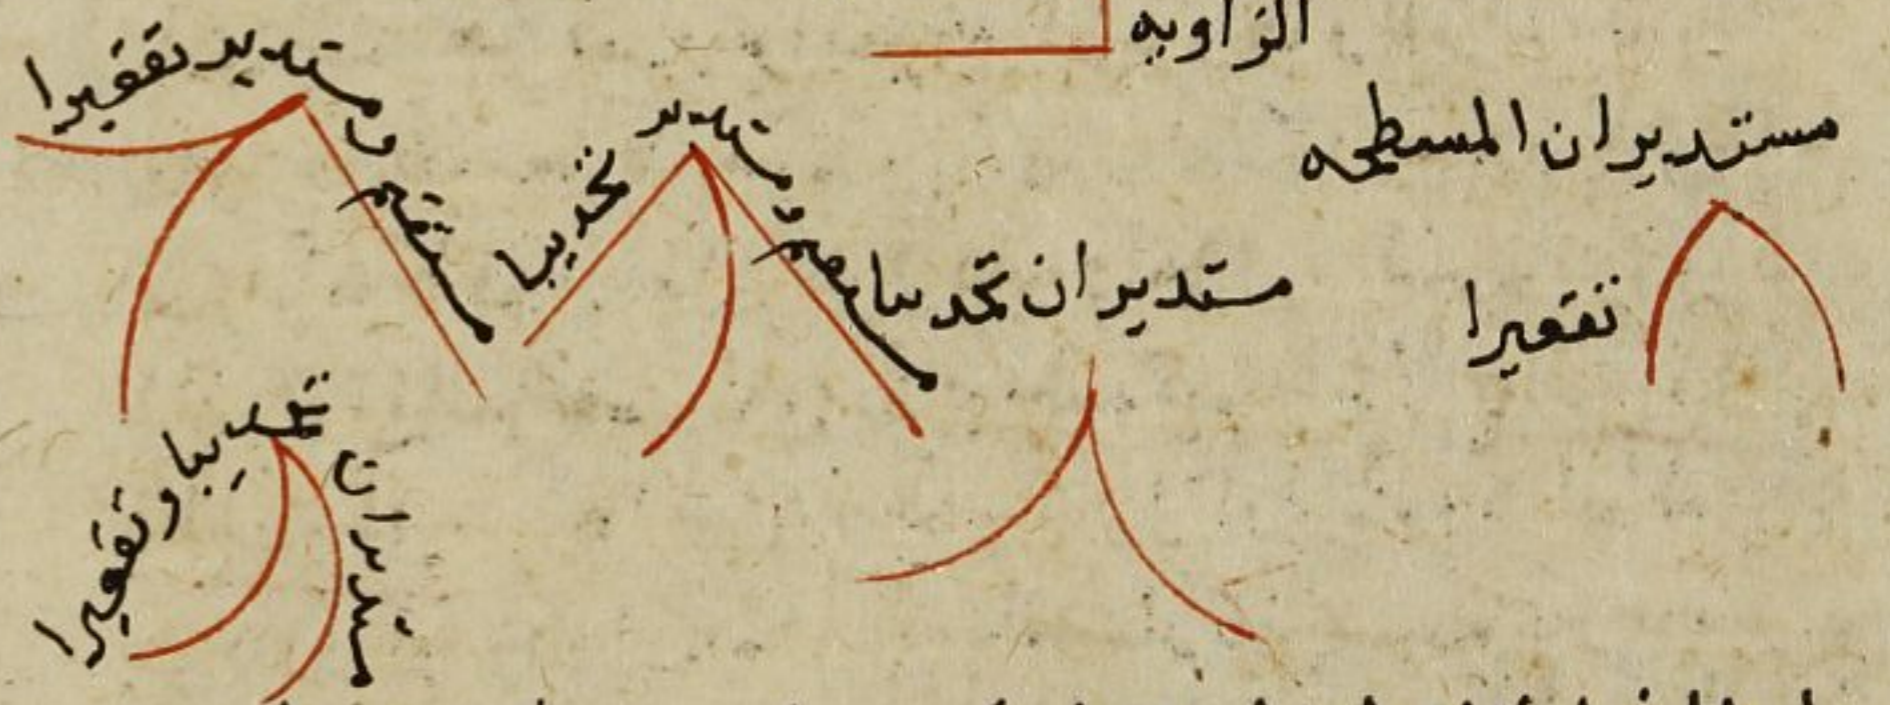 الزاويه
مستديران المسطحه
تقعيرا
مستديران تحديبا
مستقيم ومستدير تحديبا
مستقيم ومستدير تقعيرا
مستديران تحديبا وتقعيرا